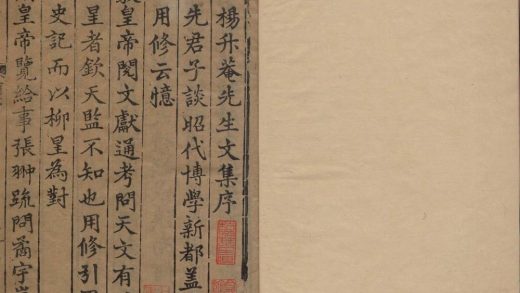 楊升菴先生文集序
先君子談昭代博學新都蓋
用修云憶
皇帝閱文獻通考問天文有
星者欽天監不知也用修引
史記而以柳星為對
皇帝覽給事張翀疏問